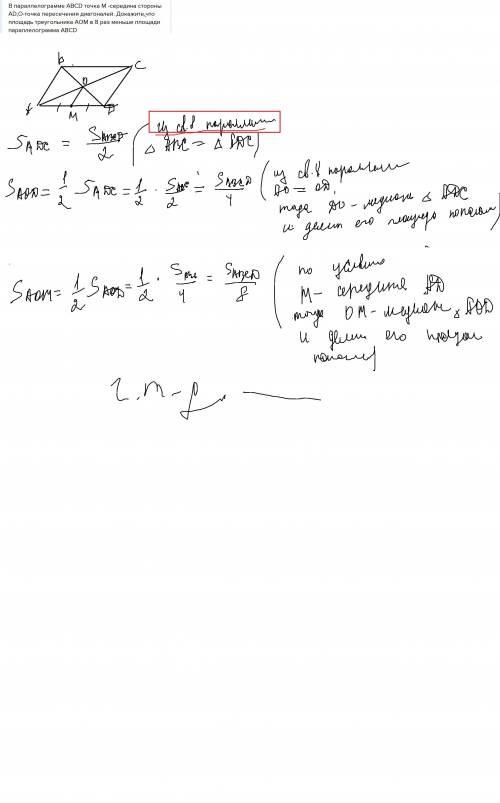 В параллелограмме ABCD точка M -середина стороны
AD,O-точка пересечения диагоналей. Докажите,что
площадь треугольника AOM в 8 раз меньше площади
параллелограмма ABCD
B C
O
M D
S ADC = S ABCD / 2 ( из св.в параллел
Δ ABC = Δ ADC)
S AOD = 1/2 S ADC = 1/2 · S / 2 = S ABCD / 4 ( из св.в параллел
тогда DO - медиана Δ ADC
и делит его площадь пополам)
S AOM = 1/2 S AOD = 1/2 · S / 4 = S ABCD / 8 ( по условию
M - середина AD
тогда OM - медиана Δ AOD
и делит его площадь
пополам)
Ч.т-д.